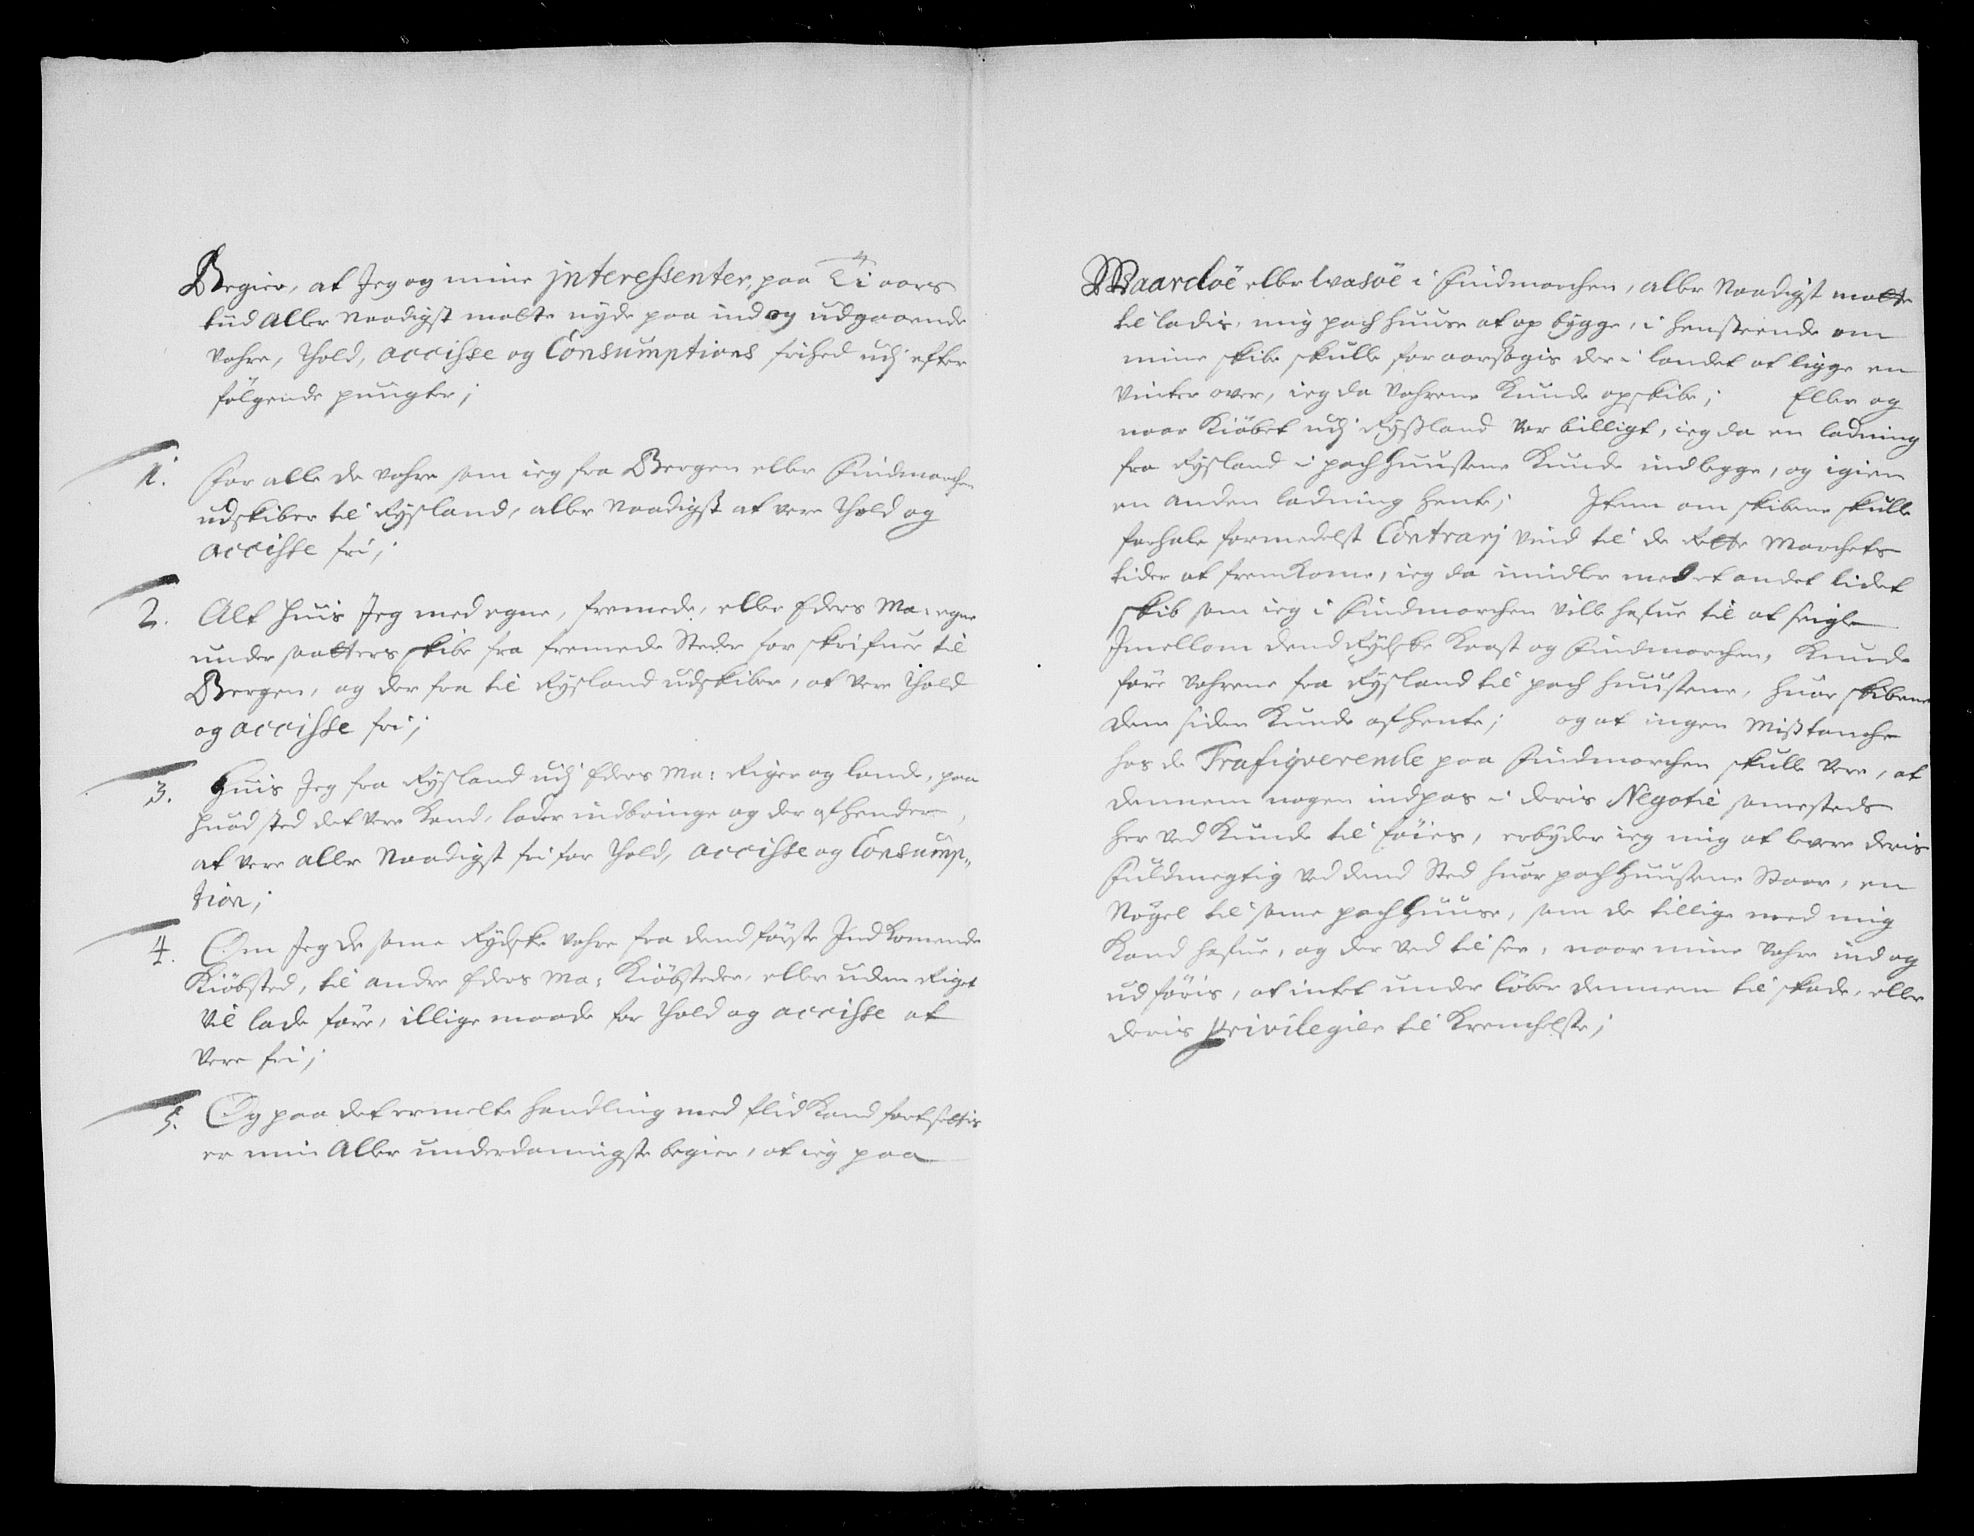 Begier, at Jeg og mine jnteressenter, paa Ti aars
tiid Aller Naadigst motte nyde paa ind og udgaaende
vahre, Thold, accisse og Consumptions frihed udj efter
følgende pungter;
1. For alle de vahre som ieg fra Bergen eller Findmarchen
udskiber til Rysland, aller Naadigst at vere Thold og
accisse fri;
2. Alt huis Jeg med egne, fremede, eller Eders Ma: egne
undersaatters skibe fra fremede Steder forskrifuer til
Bergen, og der fra til Rysland udskiber, at vere Thold
og accisse fri;
3. Huis Jeg fra Rysland udj Eders Ma: Riger og lande, paa
huad sted det vere kand, lader indbringe og der afhender,
at vere aller Naadigst fri for Thold, accisse og Consump-
tion;
4. Om Jeg de same Rydske vahre fra dend første Indkomende
Kiøbsted, til andre Eders Ma: Kiøbsteder, eller uden Riget
vil lade føre, illige maade for Thold og accisse at
vere fri;
5. Og paa det ermelte handling med flid kand fortsettis
er min Aller underdannigste begier, at ieg paa
Waardöe eller Wasöe i Findmarchen, aller Naadigst motte
tilladis, mig pachhuuse at opbygge, i henseende om
mine skibe skulle foraarsagis der i landet at ligge en
vinter over, ieg da vahrene kunde opskibe; Eller og
naar Kiöbet udj Rysland var billigt, ieg da en ladning
fra Rysland i pachhuusene kunde indlegge, og igien
en anden ladning hente; Item om skibene skulle
forhale formedelst Contrarj vind til de rette Marchets
tider at fremkome, ieg da imidler med et andet lidet
skib som ieg i Findmarchen ville hafue til at seigle
Imellom dend Rydske Kaast og Findmarchen, kunde
føre vahrene fra Rysland til pachhuusene, huor skibene
dem siden kunde afhente; og at ingen Mistanche
hos de Trafiqverende paa Findmarchen skulle vere, at
dennem nogen indpas i deris Negotie samesteds
her ved kunde tilføies, erbyder ieg mig at levere deris
Fuldmegtig ved dend Sted huor pachhuusene Staar, en
Nøgel til same pachhuuse, som de tillige med mig
kand hafue, og der ved til see, naar mine vahre ind og
udføris, at intet under løber dennem til skade, eller
deris privilegier til krenchelse;